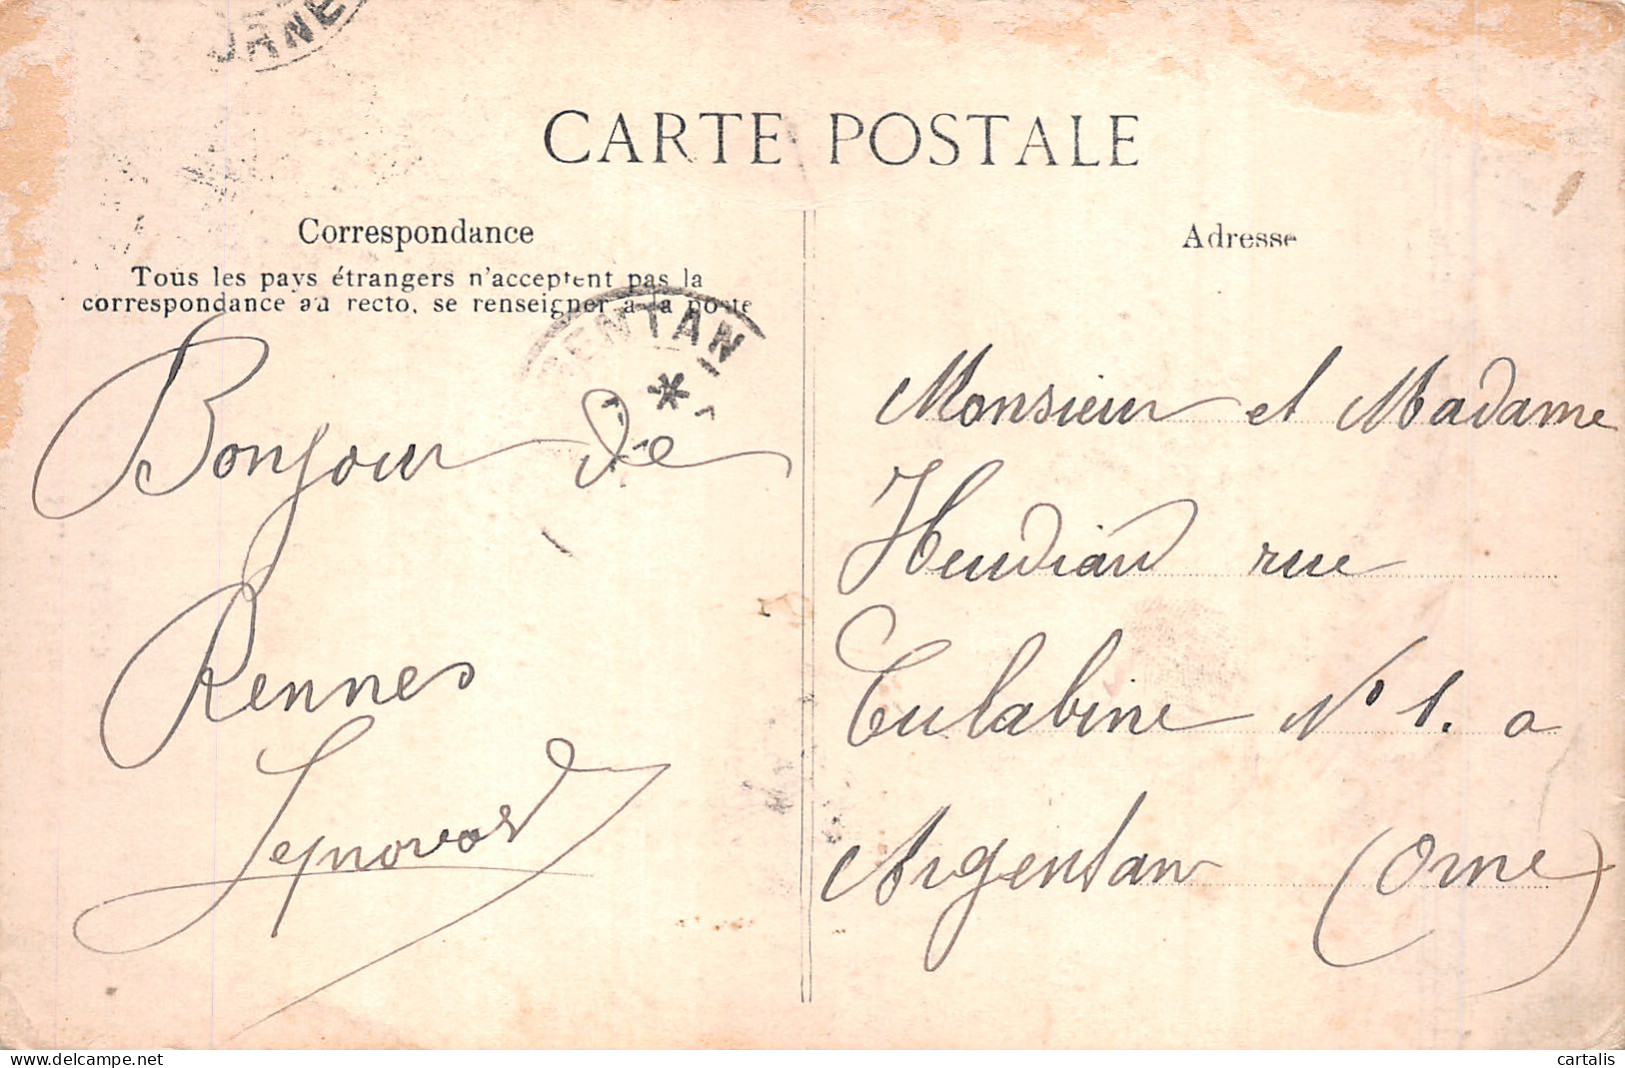 ORNE
CARTE POSTALE
Correspondance
Tous les pays étrangers n'acceptent pas la
correspondance au recto, se renseigner à la poste
GENTAN
Bonjour de
Rennes
Adresse
Monsieur et Madame
Heudiard rue
Eulabine N° 1. a
Argentan (Orne)
delcampe.net
cartalis